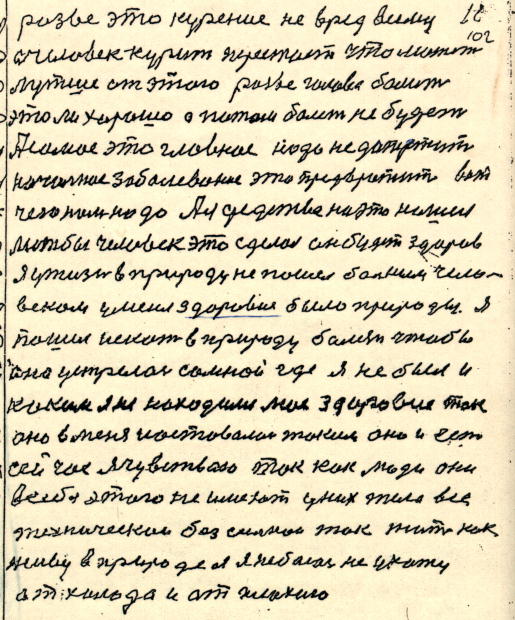 разве это курение не вред всему 18
102
а человек курит перестает что может
лутше от этого разве голова болит
это ли хорошо а потом болит не будет
А самое это главное надо не допустить
начальное заболевание это предвратить вот
чего нам надо А я средства на это нашел
лиш бы человек это сделал он будет здоров
Я  в природу не пошел больным чело-
веком у меня здоровие было природы. Я
пошел искать в природу болезн чтобы
она  самной где я не был и
каким я не находили мое здоровие так
оно в меня и оставалос таким оно и ест
сей час я чувствваю так как люди они
в себе этого не имеют у них тело все
технической без силной так жить как
живу в природе я я небагат не ухожу
от холода и от плохого